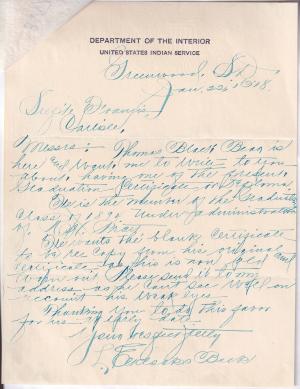 DEPARTMENT OF THE INTERIOR
UNITED STATES INDIAN SERVICE
Greenwood, S.D.
Jan. 22, 1918.
Carlisle,
Messrs: Thomas Black Bear is
here and want me to write to you
about having one of the present
Graduation Certificate or Diploma.
He is the member of the Graduating
Class of 1890 under administration
of
He wants the blank Certificate
to be re copy from his original
Certificate as this is now old and
Please send it to my
address as he can't see well on
account his weak eyes.
Thanking you to do this favor
for his
Yours respectfully